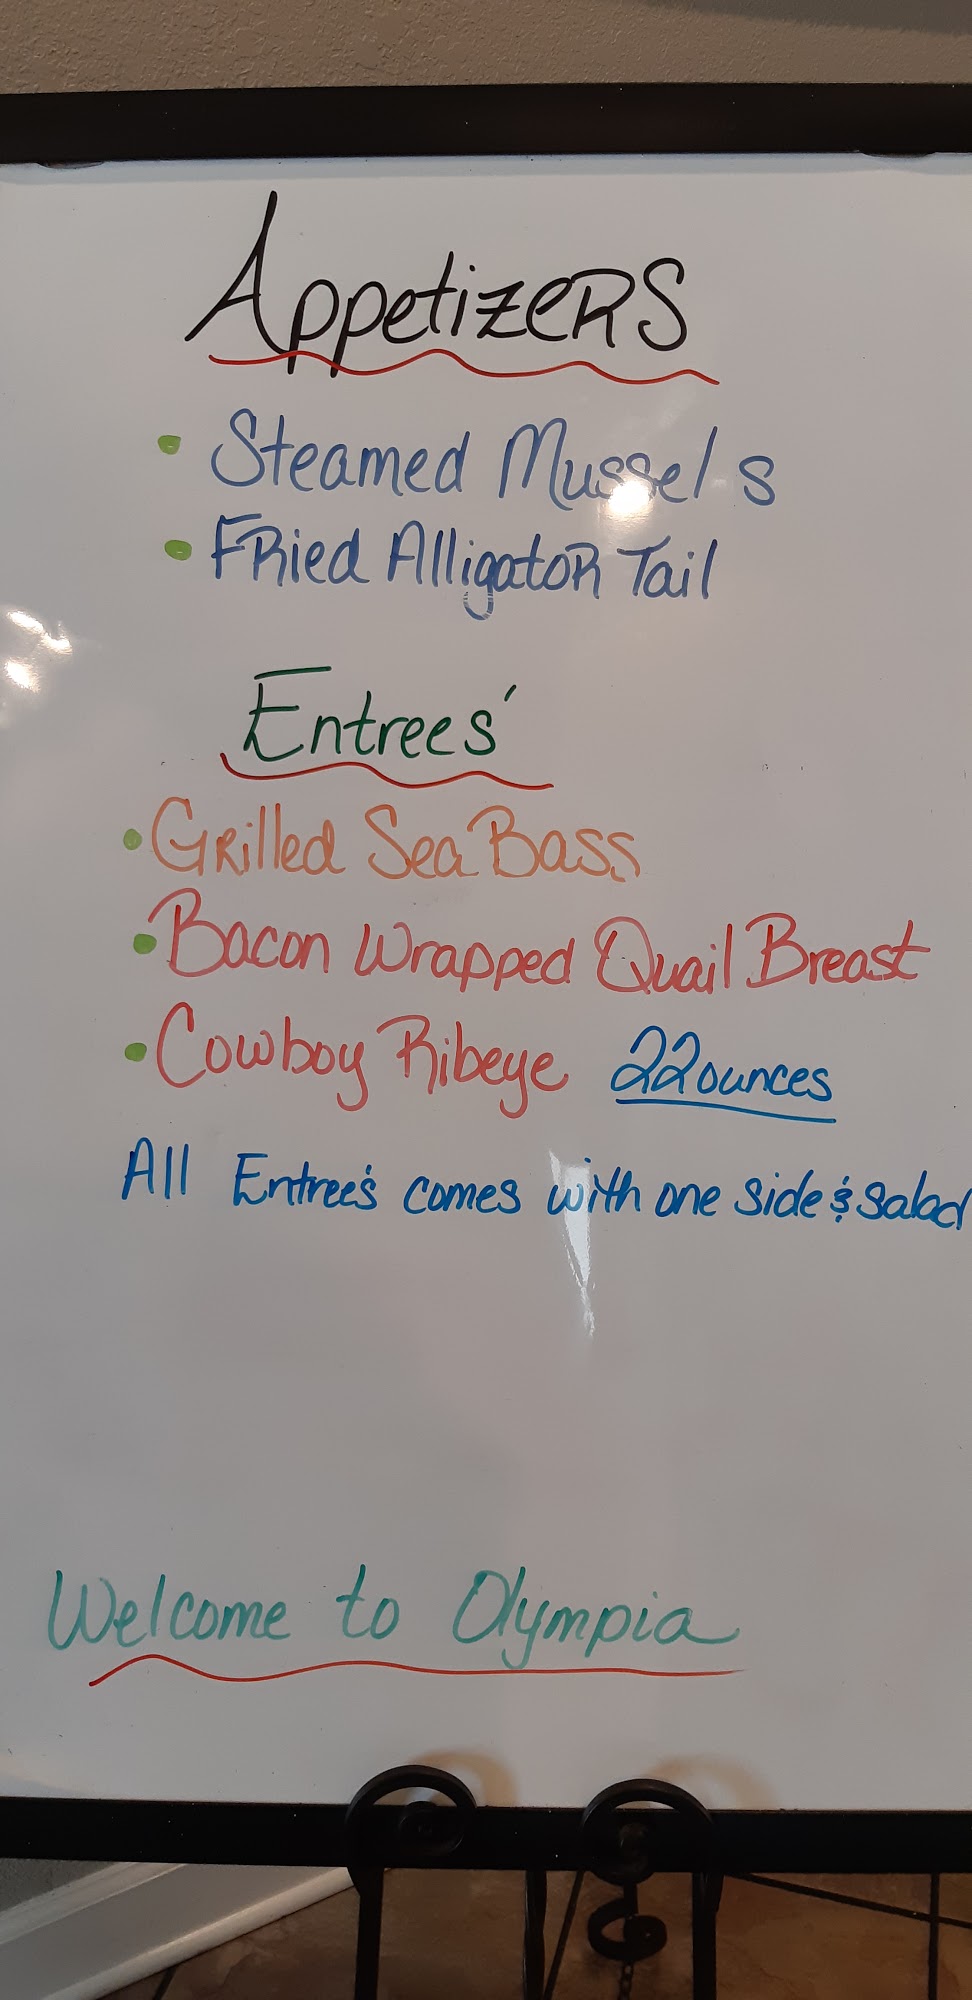 AppetizeRS
• Steamed Mussels
• FRied AlligatoR Tail
Entrees'
• GRilled Sea Bass
• Bacon Wrapped Quail Breast
• Cowboy Ribeye 22ounces
All Entree's comes with one side & salad
Welcome to Olympia